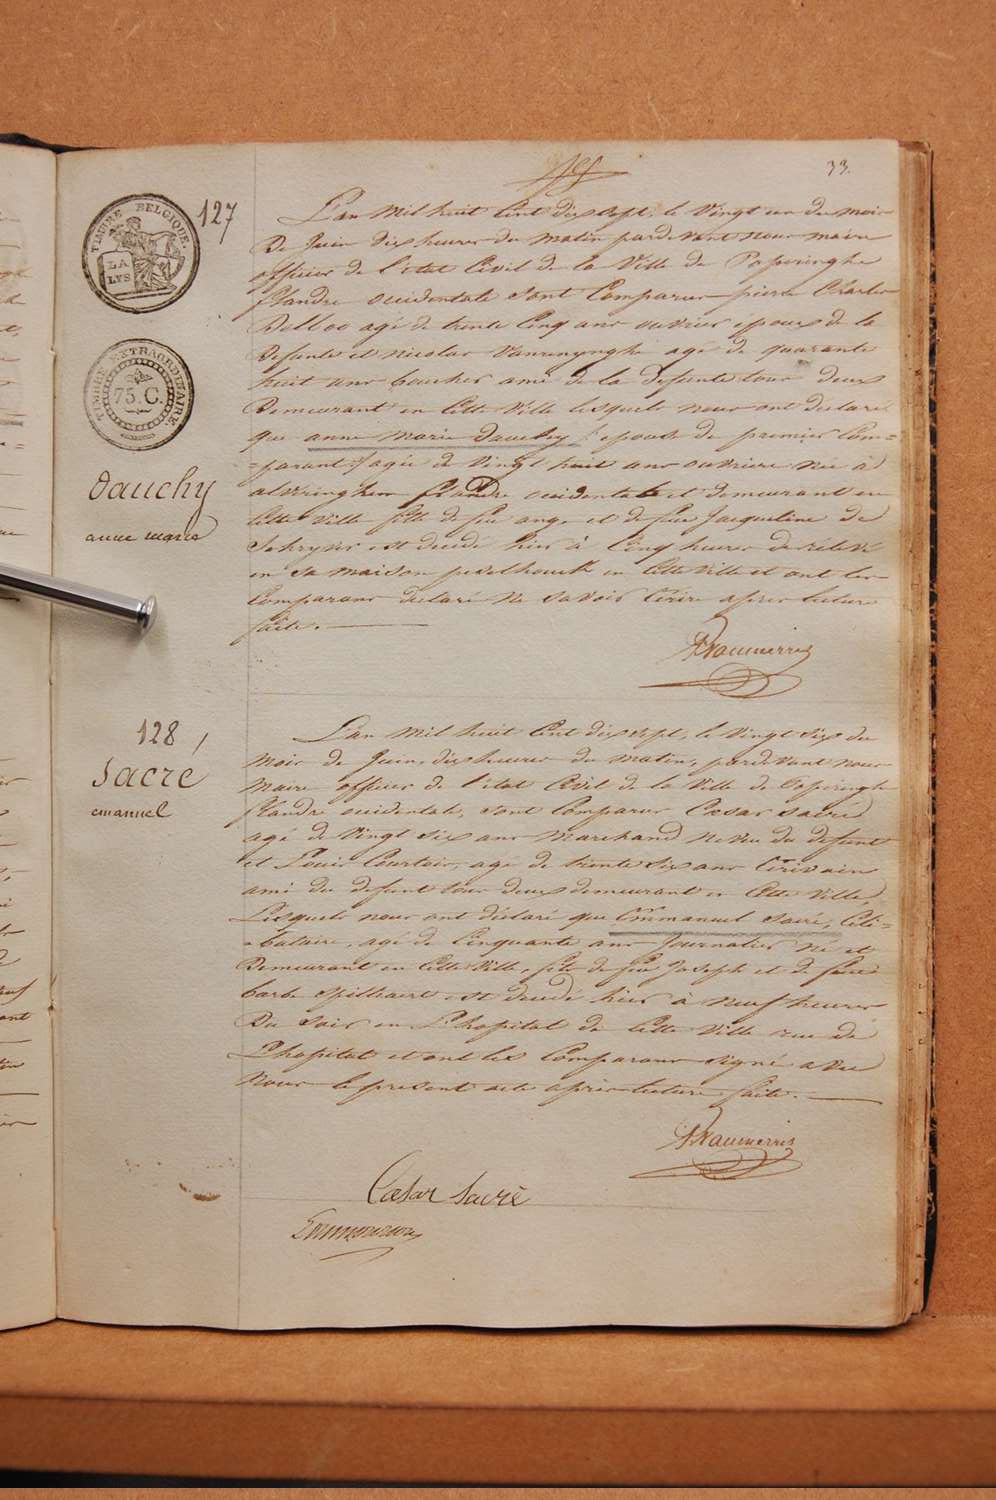 33.
TIMBRE BELGIQUE.
LA
LYS
127
L'an mil huit Cent dix sept, le vingt un du mois
De Juin dix heures du matin pardevant nous maire
officier de l'état Civil de la Ville de Poperinghe
flandre occidentale sont Comparus pierre Charles
Delloo agé de trente Cinq ans ouvrier époux de la
Defunte et nicolas Vanrenynghe agé de quarante
huit ans boucher ami de la Defunte tous deux
Demeurant en Cette Ville lesquels nous ont declaré
que anne marie Dauchy épouse de premier Com=
=parant agée de vingt huit ans ouvriere née à
alveringhem flandre occidentale et demeurant en
Cette Ville fille de feu ange et de feu Jacqueline De
Schryver est decedé hier à Cinq heures de rélévé
en sa maison peselhouck en Cette Ville et ont les
Comparans declaré ne savoir Ecrire aprés lecture
faite.
TIMBRE EXTRAORDINAIRE
75. C.
Dauchy
anne marie
128
Sacré
emanuel
L'an mil huit Cent dix sept, le vingt six du
mois de Juin, dix heures du matin, pardevant nous
maire officier de l'état Civil de la Ville de Poperinghe
flandre occidentale, sont Comparus Cæsar Sacré
agé de vingt six ans marchand neveu du defunt
et Louis Courtois, agé de trente six ans Ecrivain
ami du defunt tous deux demeurant en Cette Ville,
Lesquels nous ont déclaré que Emmanuel Sacré, Céli=
=bataire, agé de Cinquante ans Journalier né et
Demeurant en Cette Ville, fils de feu Joseph et de feue
barbe Spilliaert est decedé hier à neuf heures
Du Soir en L'hopital de Cette Ville rue de
L'hopital et ont les Comparans signé avec
Nous le present acte aprés lecture faite.
Cæsar Sacré